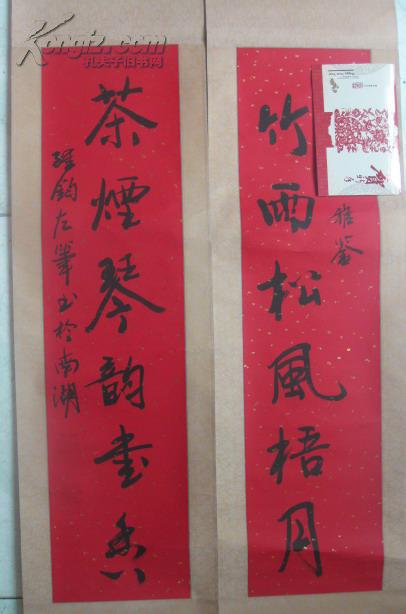 竹雨松風梧月
雅鉴
茶煙琴韵书香
鈞左筆书於南湖
Kongfz.com
孔夫子旧书网